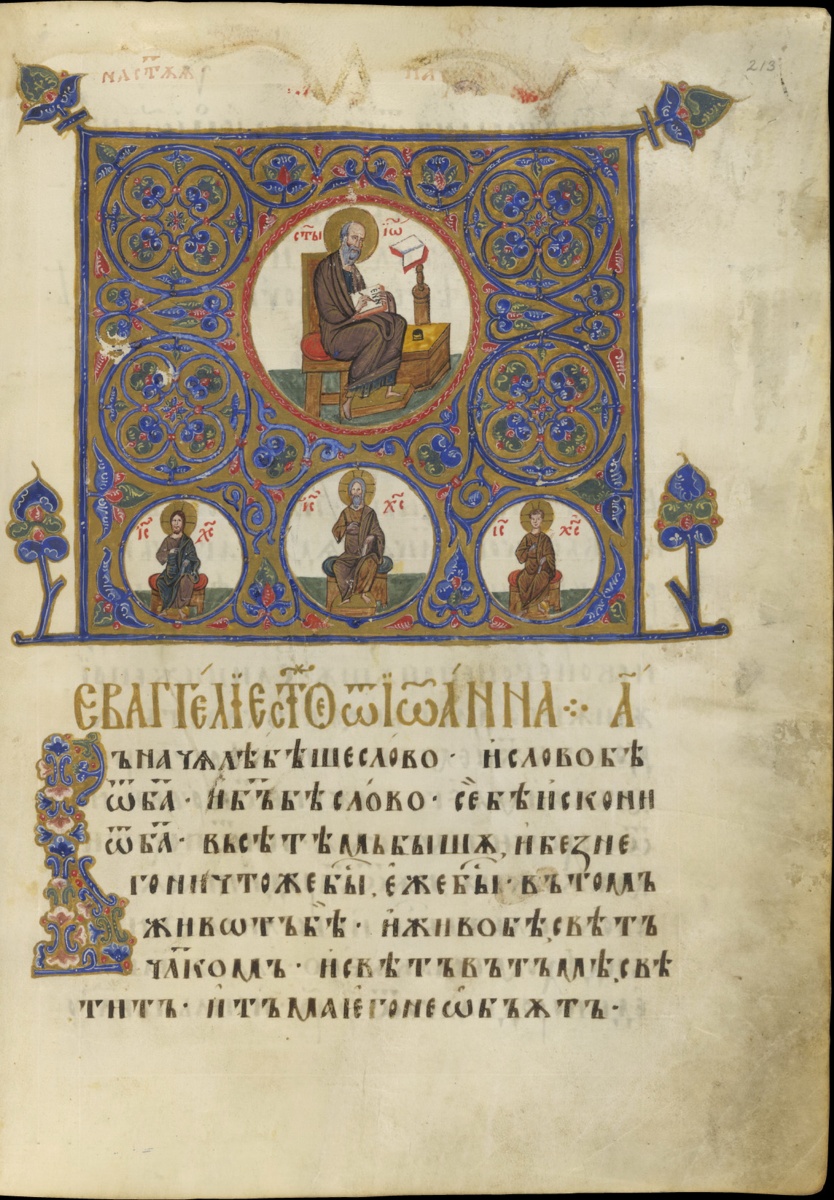 213
ст҃ы і҆ѡ҃
і҃с х҃с
і҃с х҃с
і҃с х҃с
ЕВАГГЕ́ЛЇЕ СТ҃ОЕ Ѿ ІѠ҃А́ННА ⁘ А҃
Въ начѧлѣ бѣше слово · и слово бѣ
ѿ ба҃ · и бъ҃ бѣ сло́во · се бѣ искони
ѿ ба҃ · въсѣ тѣмь бышѧ, и без не
го ничтоже бы́, еже бы́ · въ томъ
живѡтъ бѣ · и живо бѣ свѣтъ
чл҃комъ · и свѣтъ въ тъмѣ свѣ
титъ · и тъма ѥго не ѡбъѫтъ ·